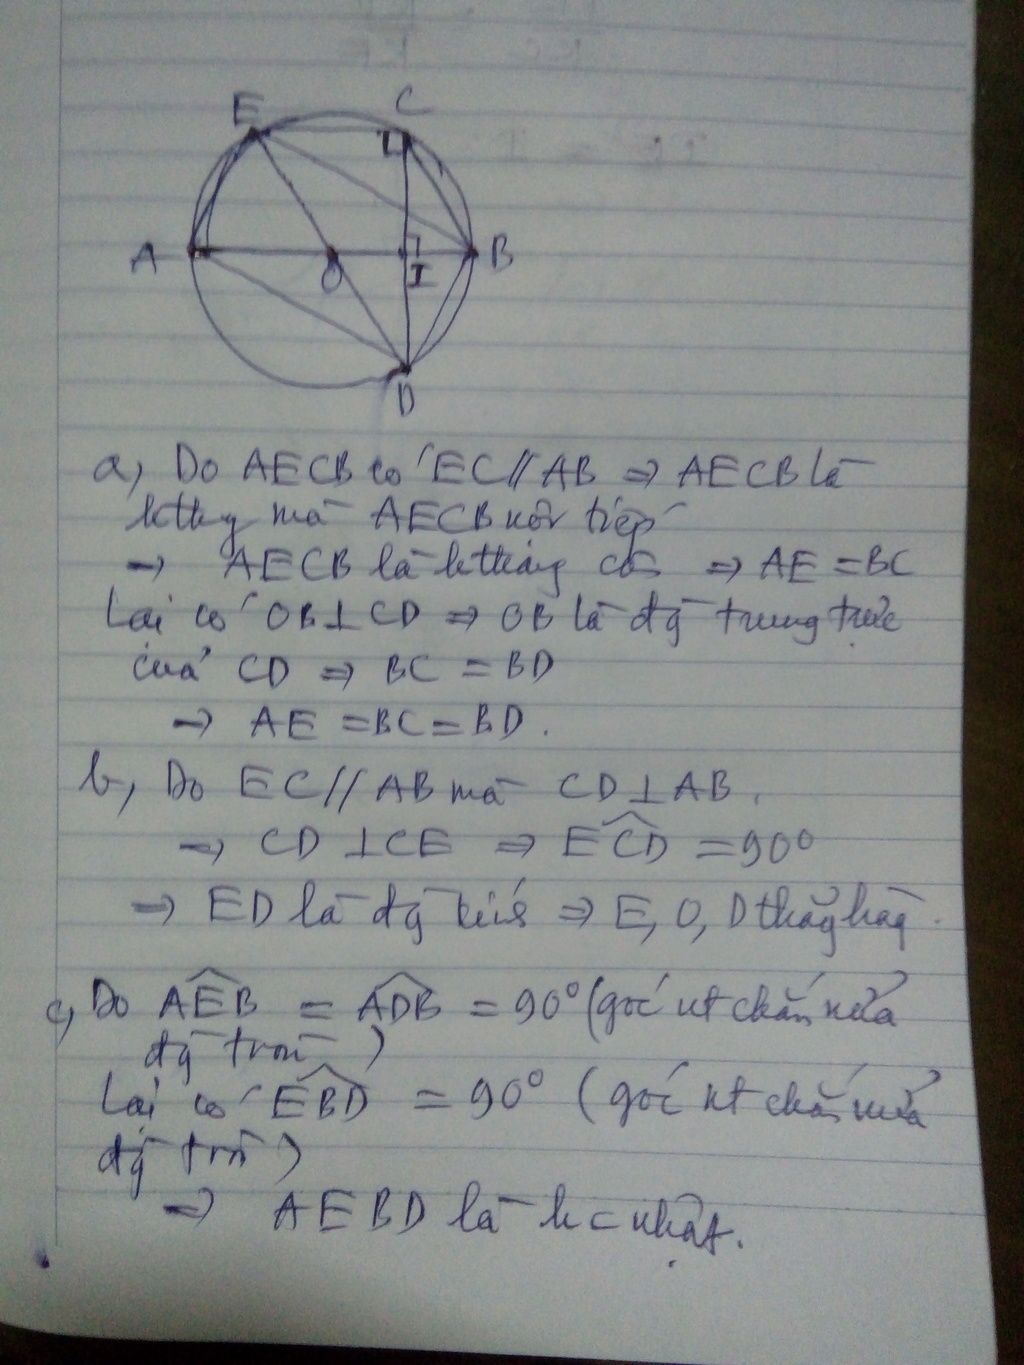 E C
A O I B
D
a, Do AECB có EC // AB ⇒ AECB là
hthg mà AECB nội tiếp
→ AECB là hthang cân ⇒ AE = BC
Lại có OB ⊥ CD ⇒ OB là đg trung trực
của CD ⇒ BC = BD
→ AE = BC = BD.
b, Do EC // AB mà CD ⊥ AB.
→ CD ⊥ CE ⇒ \widehat{ECD} = 90°
→ ED là đg kính ⇒ E, O, D thẳg hàg.
c, Do \widehat{AEB} = \widehat{ADB} = 90° (góc nt chắn nửa
đg tròn)
Lại có \widehat{EBD} = 90° (góc nt chắn nửa
đg tròn)
→ AEBD là h c nhật.